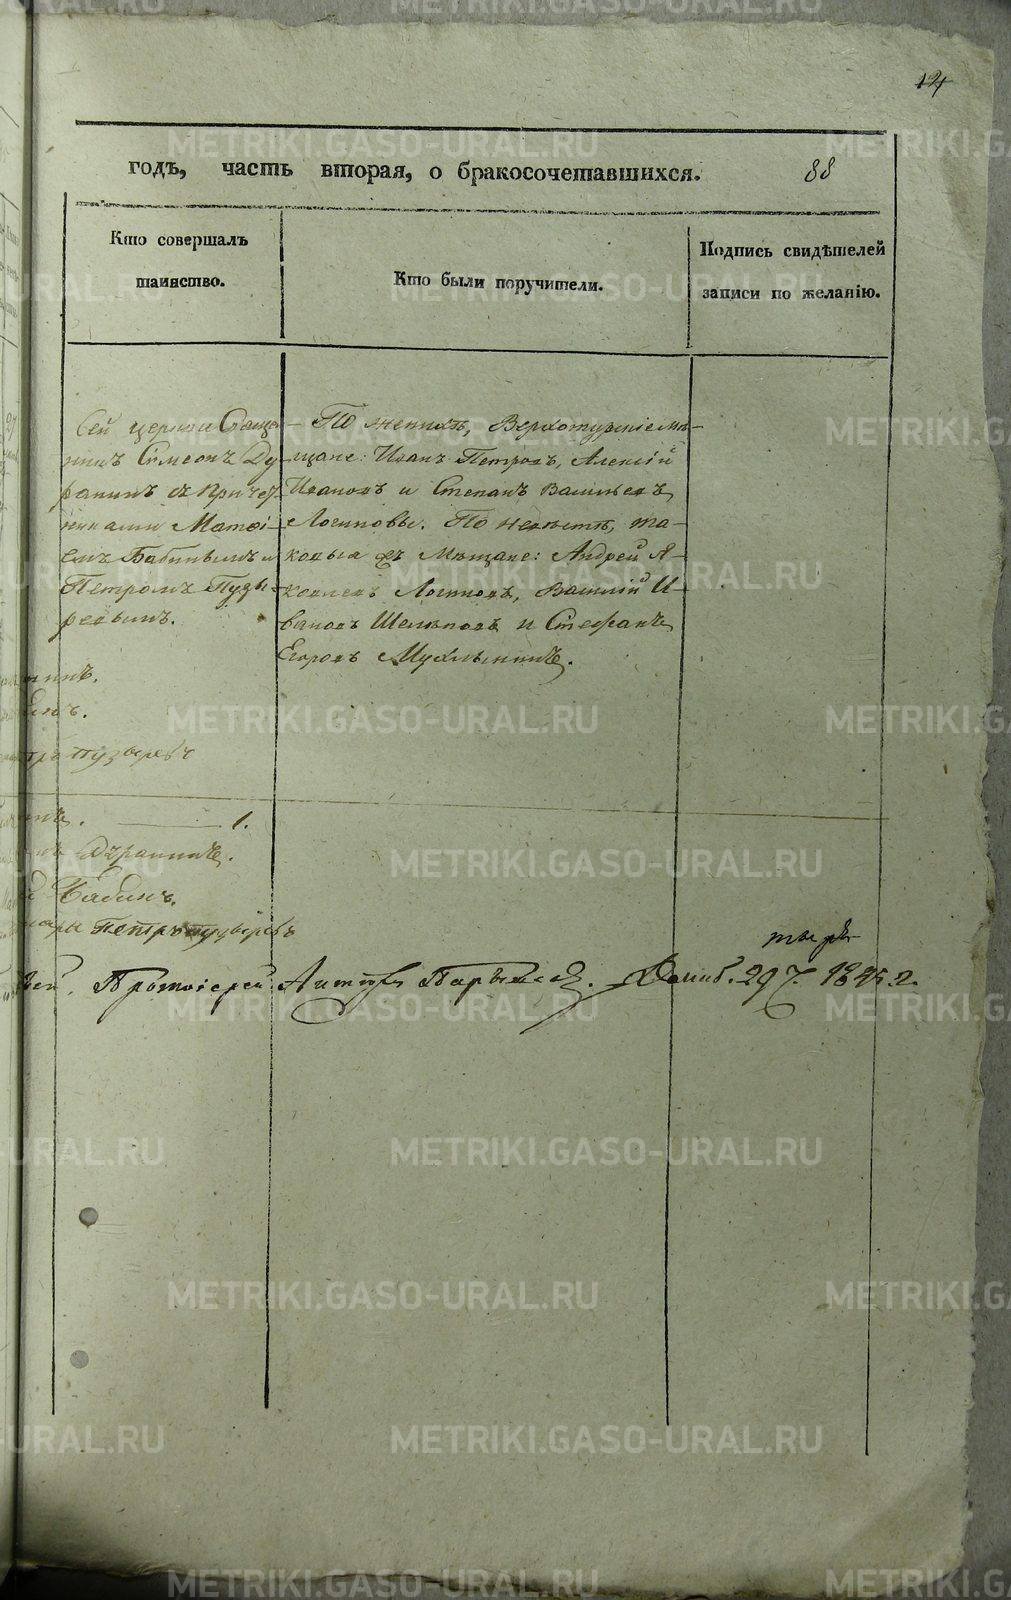 14
годъ, часть вторая, о бракосочетавшихся. 88
Кто совершалъ
таинство.
Кто были поручители.
Подпись свидѣтелей
записи по желанію.
Сей церкви Свяще-
нникъ Симеонъ Ду-
ранинъ съ Причет-
никами Матѳі-
емъ Бабинымъ и
Петромъ Пузы-
ревымъ.
По женихѣ, Верхотурскіе мѣ-
щане: Иванъ Петровъ, Алексій
Ивановъ и Степанъ Васильевъ
Логиновы. По невѣстѣ, та-
ковыя жъ Мѣщане: Андрей Я-
ковлевъ Логиновъ, Василій И-
вановъ Шелѣповъ и Стефанъ
Егоровъ Мухлынинъ.
Пузыревъ
1.
Дуранинъ.
Бабинъ.
Петръ Пузыревъ
Протоіерей
METRIKI.GASO-URAL.RU